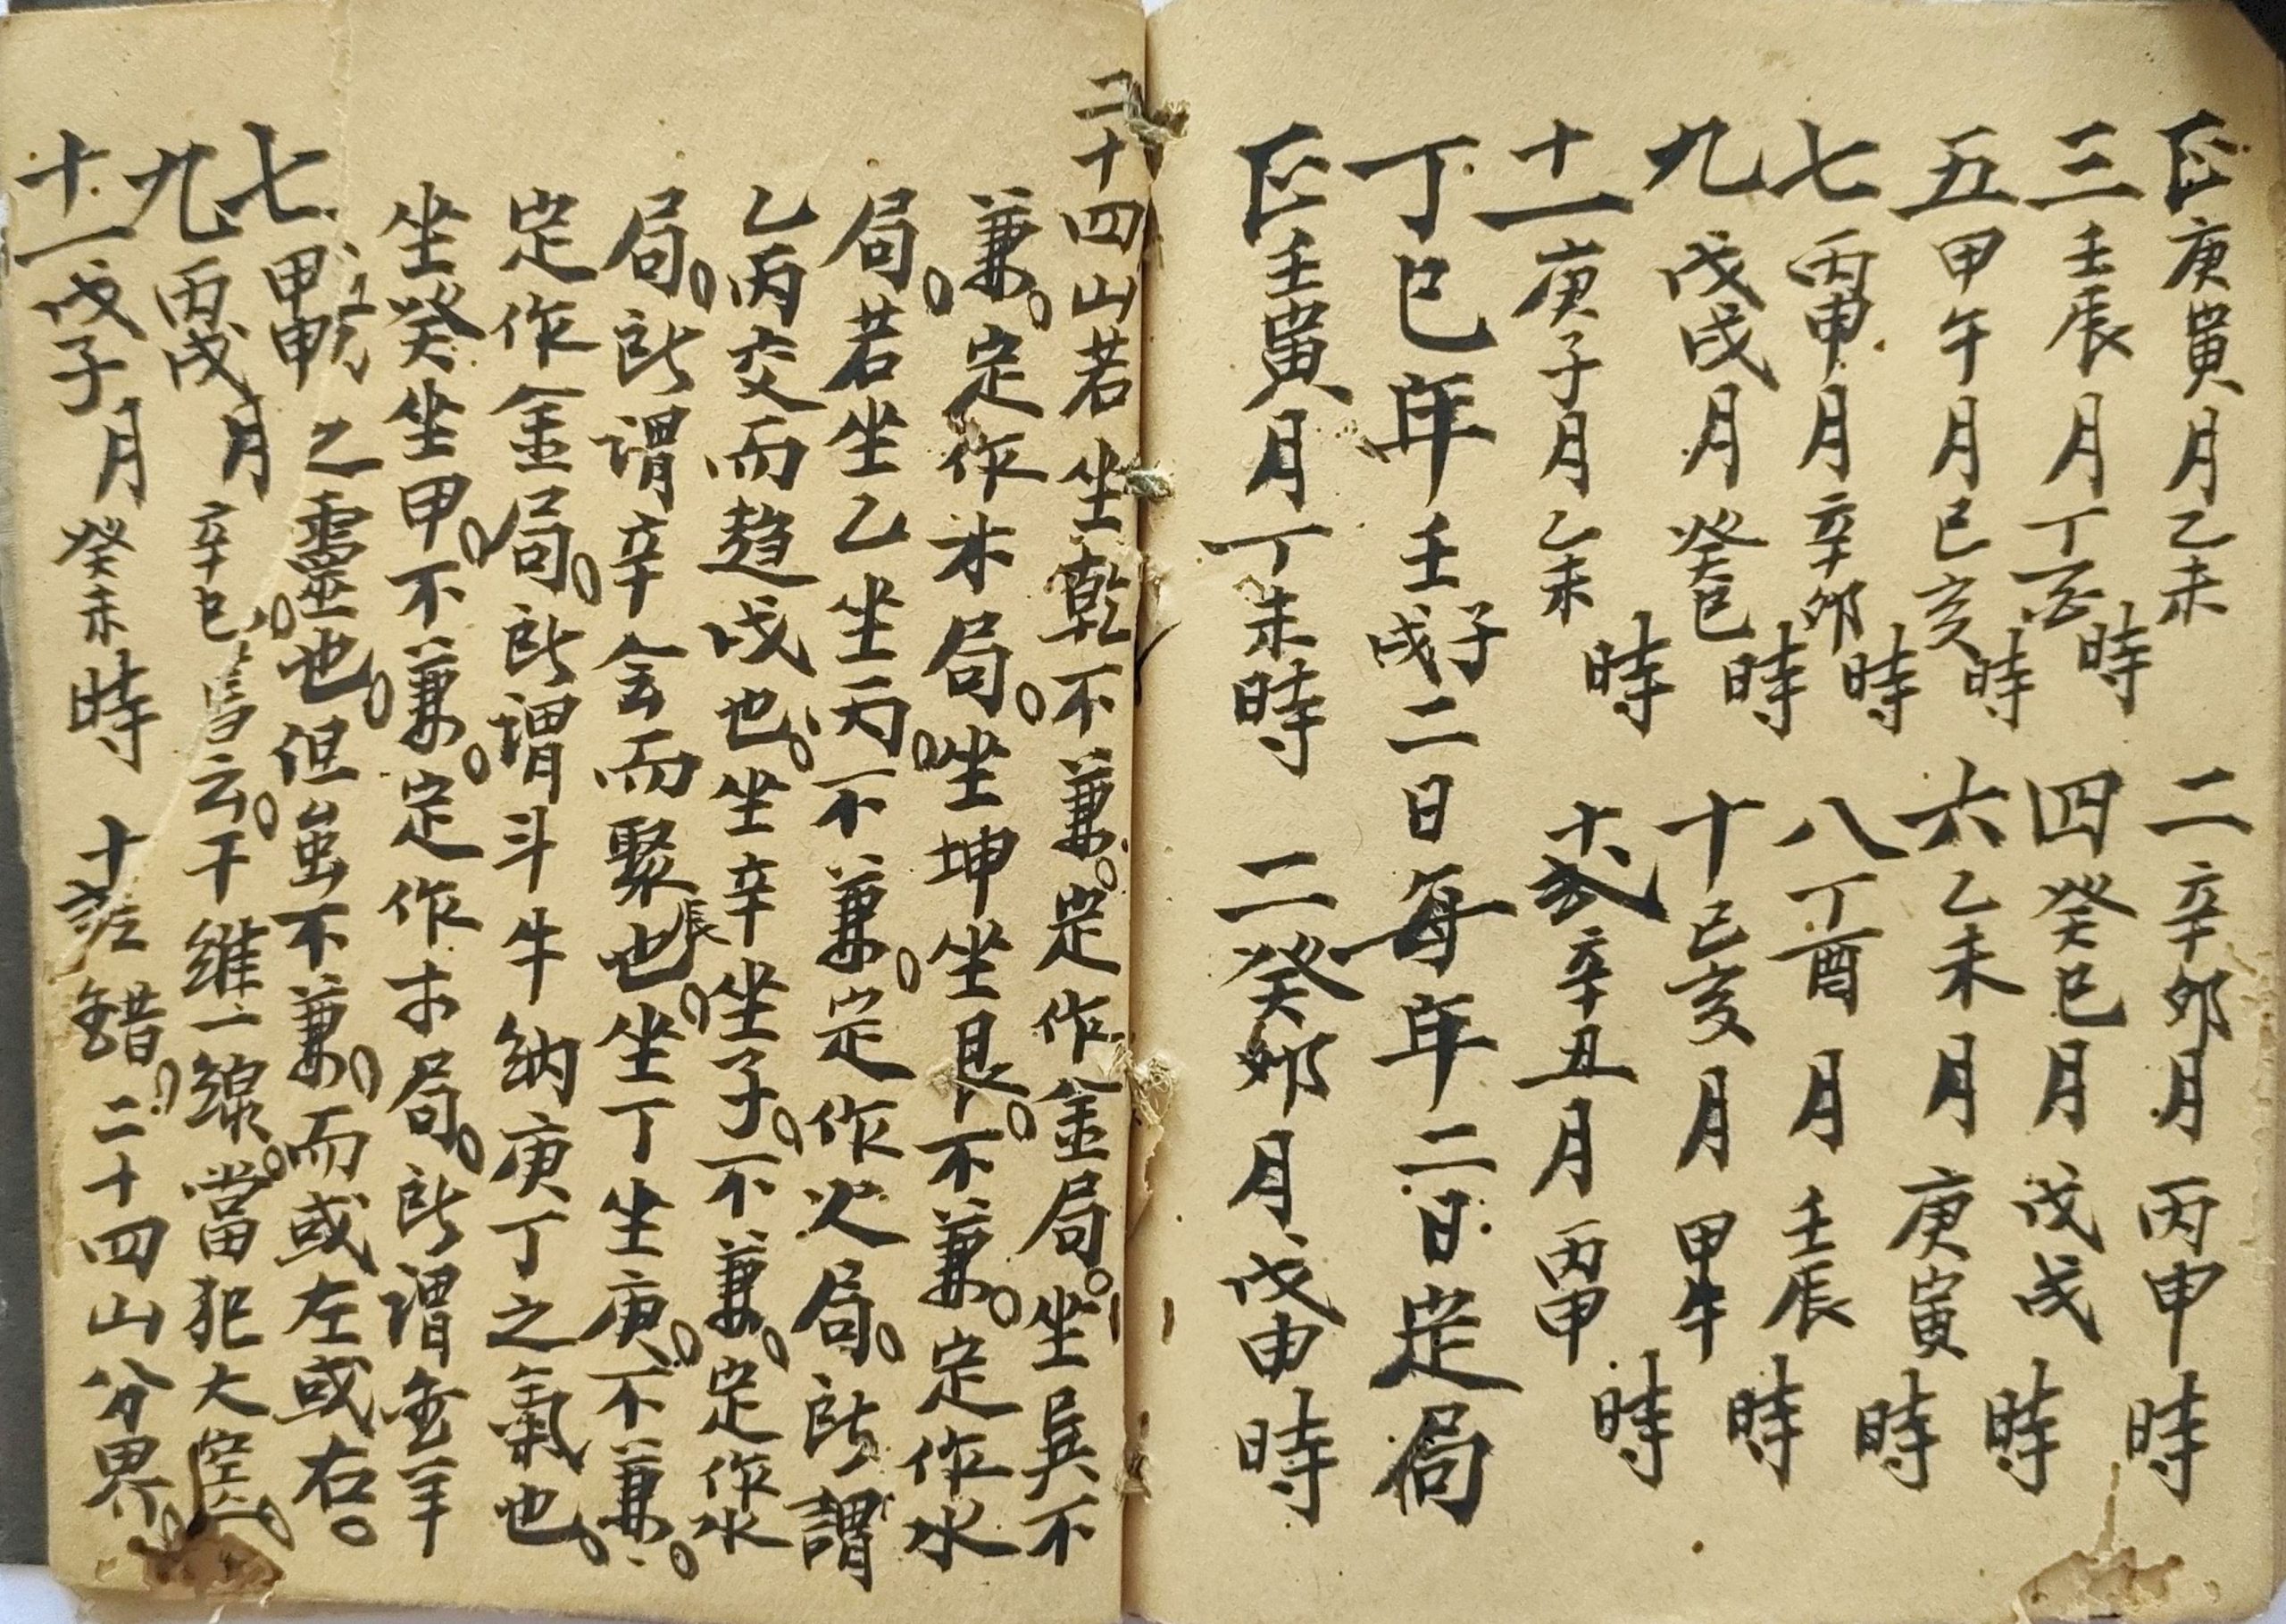 正庚寅月乙未時 二辛卯月丙申時
三壬辰月丁酉時 四癸巳月戊戌時
五甲午月己亥時 六乙未月庚寅時
七丙申月辛卯時 八丁酉月壬辰時
九戊戌月癸巳時 十己亥月甲午時
十一庚子月乙未時 十二辛丑月丙申時
丁巳年壬子戌二日每年二日定局
正壬寅月丁未時 二癸卯月戊申時
二十四山若坐乾不兼定作金局坐巽不
兼定作木局坐坤坐艮不兼定作水
局若坐乙坐丙不兼定作火局所謂
乙丙交而趋戌也坐辛坐子不兼定作水
局所謂辛金而聚辰也坐丁坐庚不兼
定作金局所謂斗牛納庚丁之氣也
坐癸坐甲不兼定作木局所謂金羊
之靈也但虽不兼而或左或右
云干維一線當犯大空
錯二十四山分界
七甲申
九丙戌月辛巳
十一戊子月癸未時